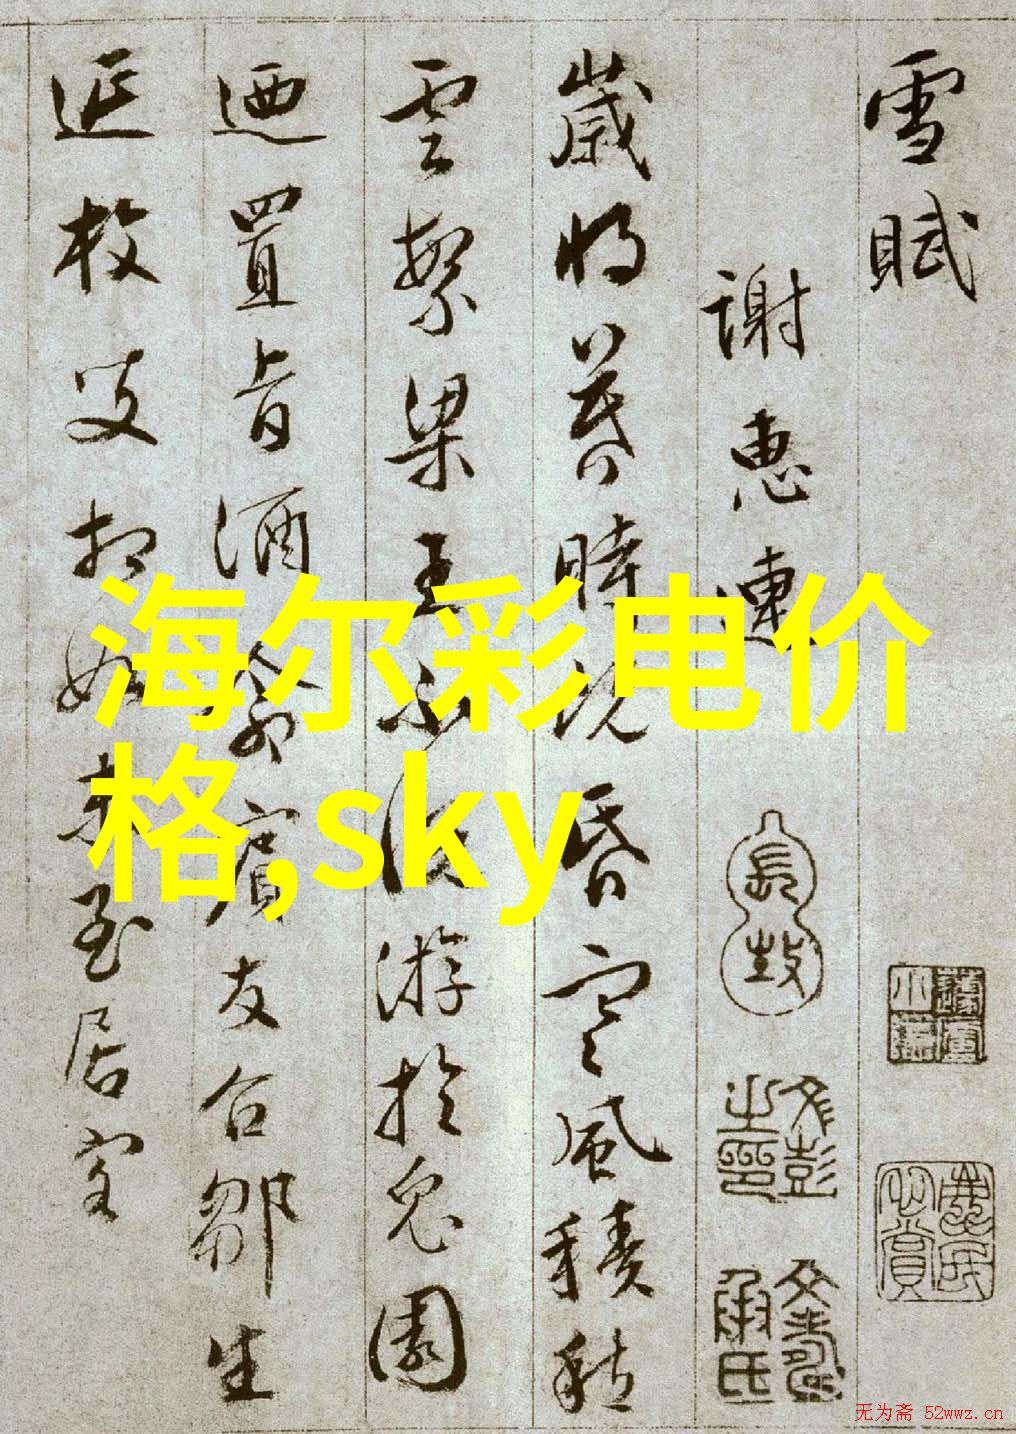 雪賦
謝惠連
歲將暮時既昏寒風積愁
雲繁梁王不悅游於兔園
迺置旨酒命賓友召鄒生
延枚叟相如末至居客
海尔彩电价
格,sky
文彭之印
文壽承氏
无为斋 52wwz.cn